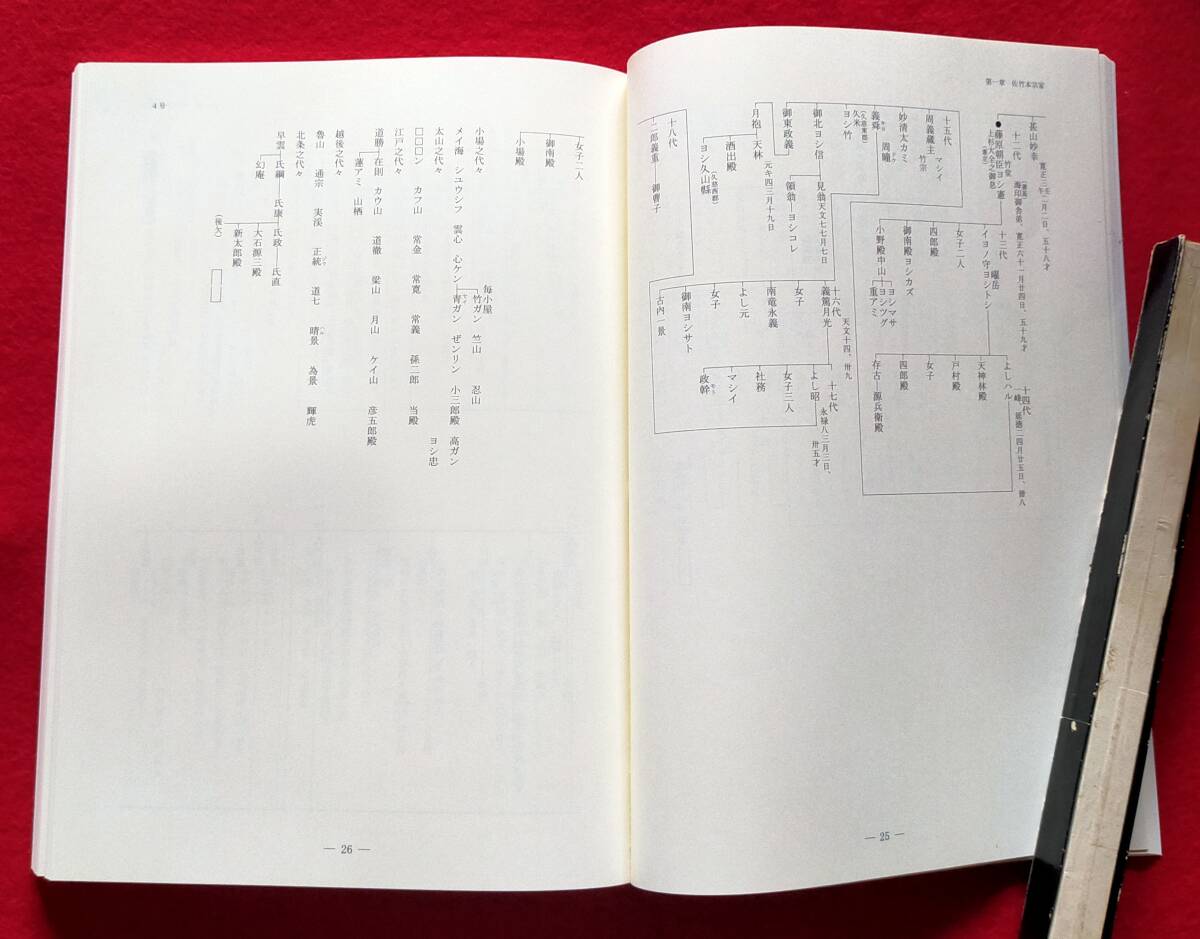 第一章 佐竹本宗家
甚山妙幸 寛正三壬午二月二日、五十八才
十二代 竹堂 海印御舎弟、寛正六十一月廿四日、五十九才
藤原朝臣ヨシ憲
上杉大全之御息
十三代 曜岳
イヨノ守ヨシトシ
女子二人
四郎殿
御南殿ヨシカズ
小野殿中山
ヨシマサ
ヨシツグ
重アミ
十四代
よしハル 一峰、延徳二四月廿五日、卌八
天神林殿
戸村殿
女子
四郎殿
存古 源兵衛殿
十五代
マシイ
周義蔵主 竹宗
妙清太カミ
周曈
義舜
(久慈東郡)
久米
ヨシ竹
御北ヨシ信
見翁 天文七七月七日
領翁 ヨシコレ
御東政義
元キ四三月十九日
月袍 天林
酒出殿
(久慈西郡)
ヨシ久山縣
十六代 天文十四、卅九
義篤月光
女子
南竜永義
よし元
女子
御南ヨシサト
古内一景
十七代 永禄八三月三日、卅五才
よし昭
女子三人
社務
マシイ
政幹
十八代
二郎義重 御曹子
— 25 —
4号
女子二人
御南殿
小場殿
小場之代々
毎小屋
竹ガン 竺山 忍山
メイ海 シユウシフ 雲心 心ケン 青ガン ぜンリン 小三郎殿 高ガン
太山之代々
ヨシ忠
□□□ン カフ山 常金 常寛 常義 孫二郎 当殿
江戸之代々
道勝 在則 カウ山 道徹 梁山 月山 ケイ山 彦五郎殿
蓮アミ 山栖
越後之代々
魯山 通宗 実渓 正統 道七 晴景 為景 輝虎
北条之代々
早雲 氏綱 氏康 氏政 氏直
幻庵
大石源三殿
新太郎殿
(後欠)
— 26 —